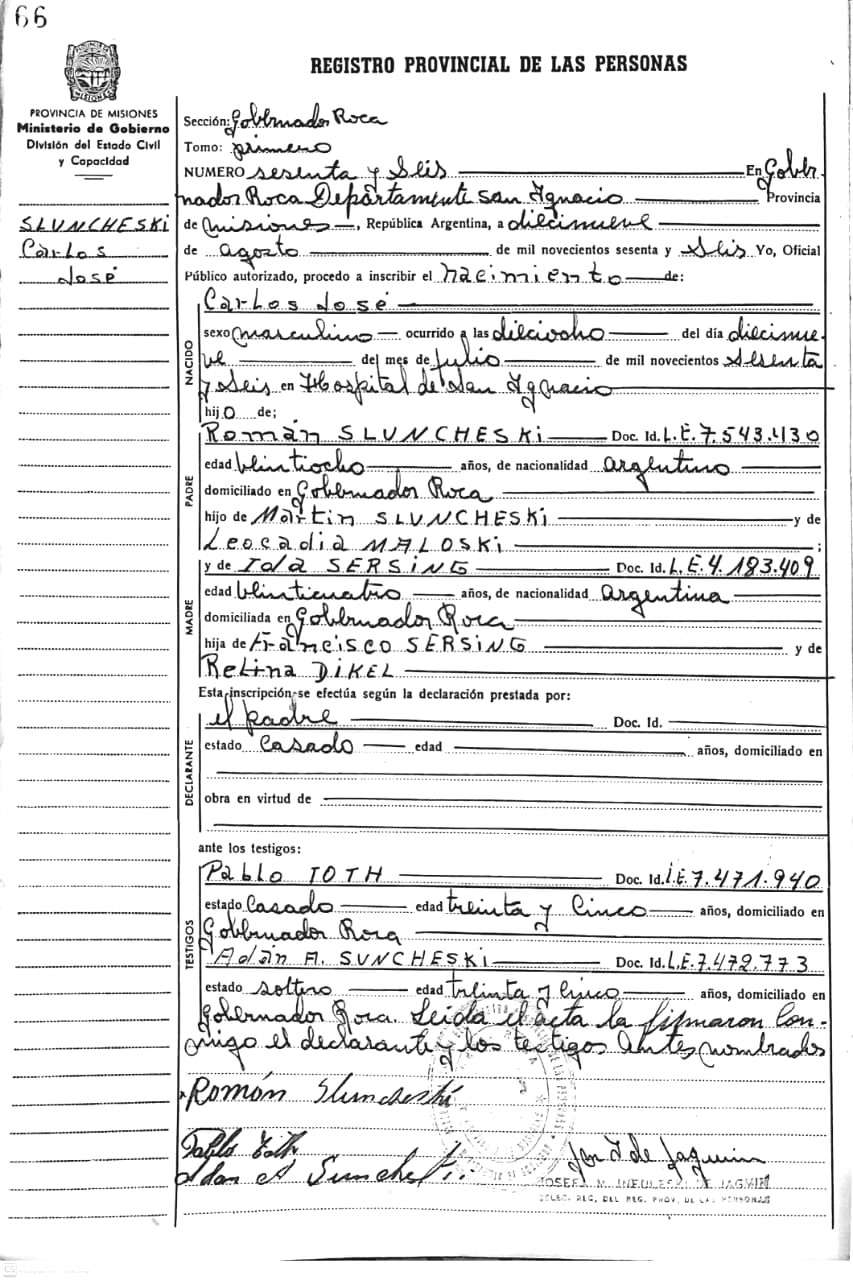 66
REGISTRO PROVINCIAL DE LAS PERSONAS
PROVINCIA DE MISIONES
Ministerio de Gobierno
División del Estado Civil
y Capacidad
SLUNCHESKI
Carlos
José
Sección: Gobernador Roca
Tomo: primero
NUMERO sesenta y Seis En Gober-
nador Roca Departamente San Ignacio Provincia
de Misiones, República Argentina, a diecinueve
de agosto de mil novecientos sesenta y Seis Yo, Oficial
Público autorizado, procedo a inscribir el nacimiento de:
NACIDO
Carlos José
sexo masculino ocurrido a las dieciocho del día diecinue-
ve del mes de julio de mil novecientos Sesenta
y Seis en Hospital de San Ignacio
hijo de;
PADRE
Román SLUNCHESKi Doc. Id. L.E.7.543.430
edad veintiocho años, de nacionalidad argentino
domiciliado en Gobernador Roca
hijo de Martin SLUNCHESKi y de
Leocadia MALOSKi ;
MADRE
y de Ida SERSiNG Doc. Id. L.E.4.183.409
edad veinticuatro años, de nacionalidad argentina
domiciliada en Gobernador Roca
hija de Francisco SERSiNG y de
Relina DiKEL
Esta inscripción se efectúa según la declaración prestada por:
DECLARANTE
el padre Doc. Id.
estado Casado edad años, domiciliado en
obra en virtud de
ante los testigos:
TESTIGOS
Pablo TOTH Doc. Id. L.E.7.471.940
estado Casado edad treinta y Cinco años, domiciliado en
Gobernador Roca
Adán A. SUNCHESKi Doc. Id. L.E.7.472.773
estado soltero edad treinta y Cinco años, domiciliado en
Gobernador Roca. Leida el acta la firmaron Con-
migo el declarante y los testigos antes nombrados
Román Sluncheski
Pablo Toth
Adan A Suncheski.
DE JAGMIN
REG. DEL REG. PROV. DE LAS PERSONAS